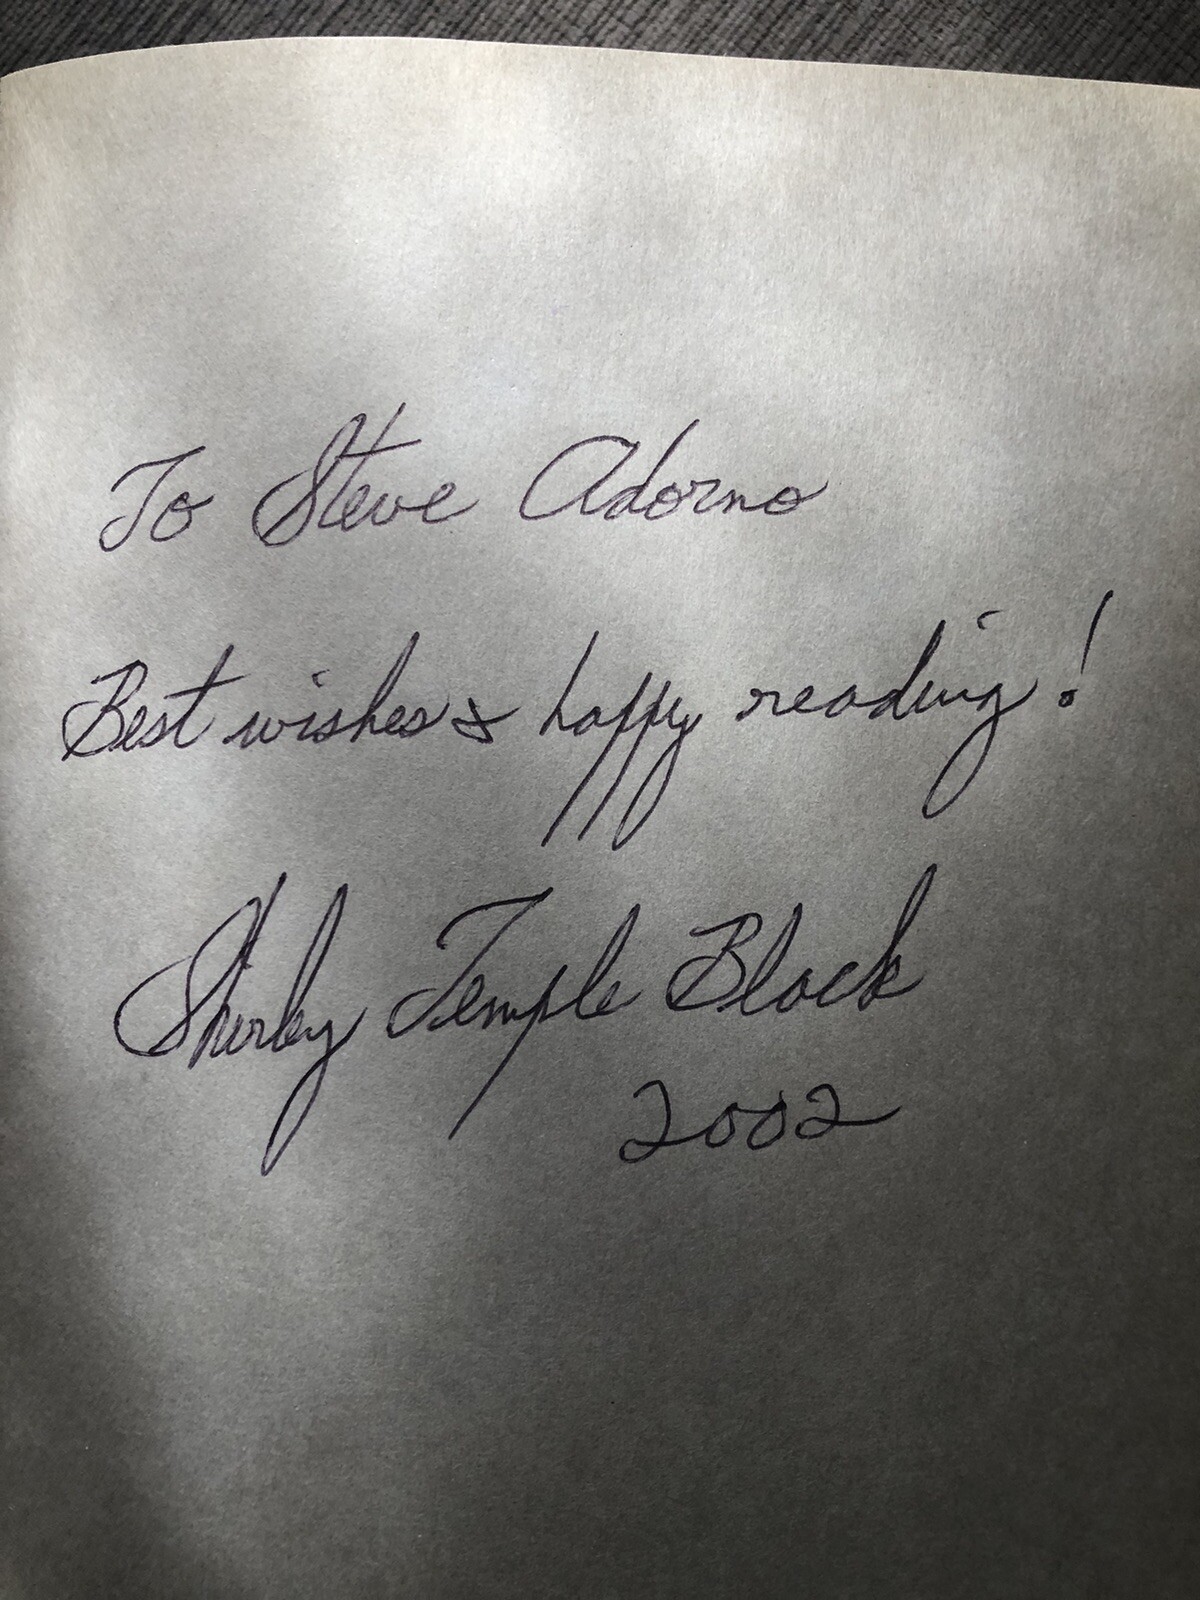 To Steve Adorno
Best wishes & happy reading!
Shirley Temple Black
2002